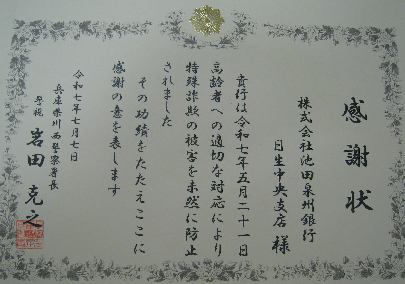 感謝状
株式会社池田泉州銀行
日生中央支店 様
貴行は令和七年五月二十一日
高齢者への適切な対応により
特殊詐欺の被害を未然に防止
されました
その功績をたたえここに
感謝の意を表します
令和七年七月七日
兵庫県川西警察署長
警視 岩田克之